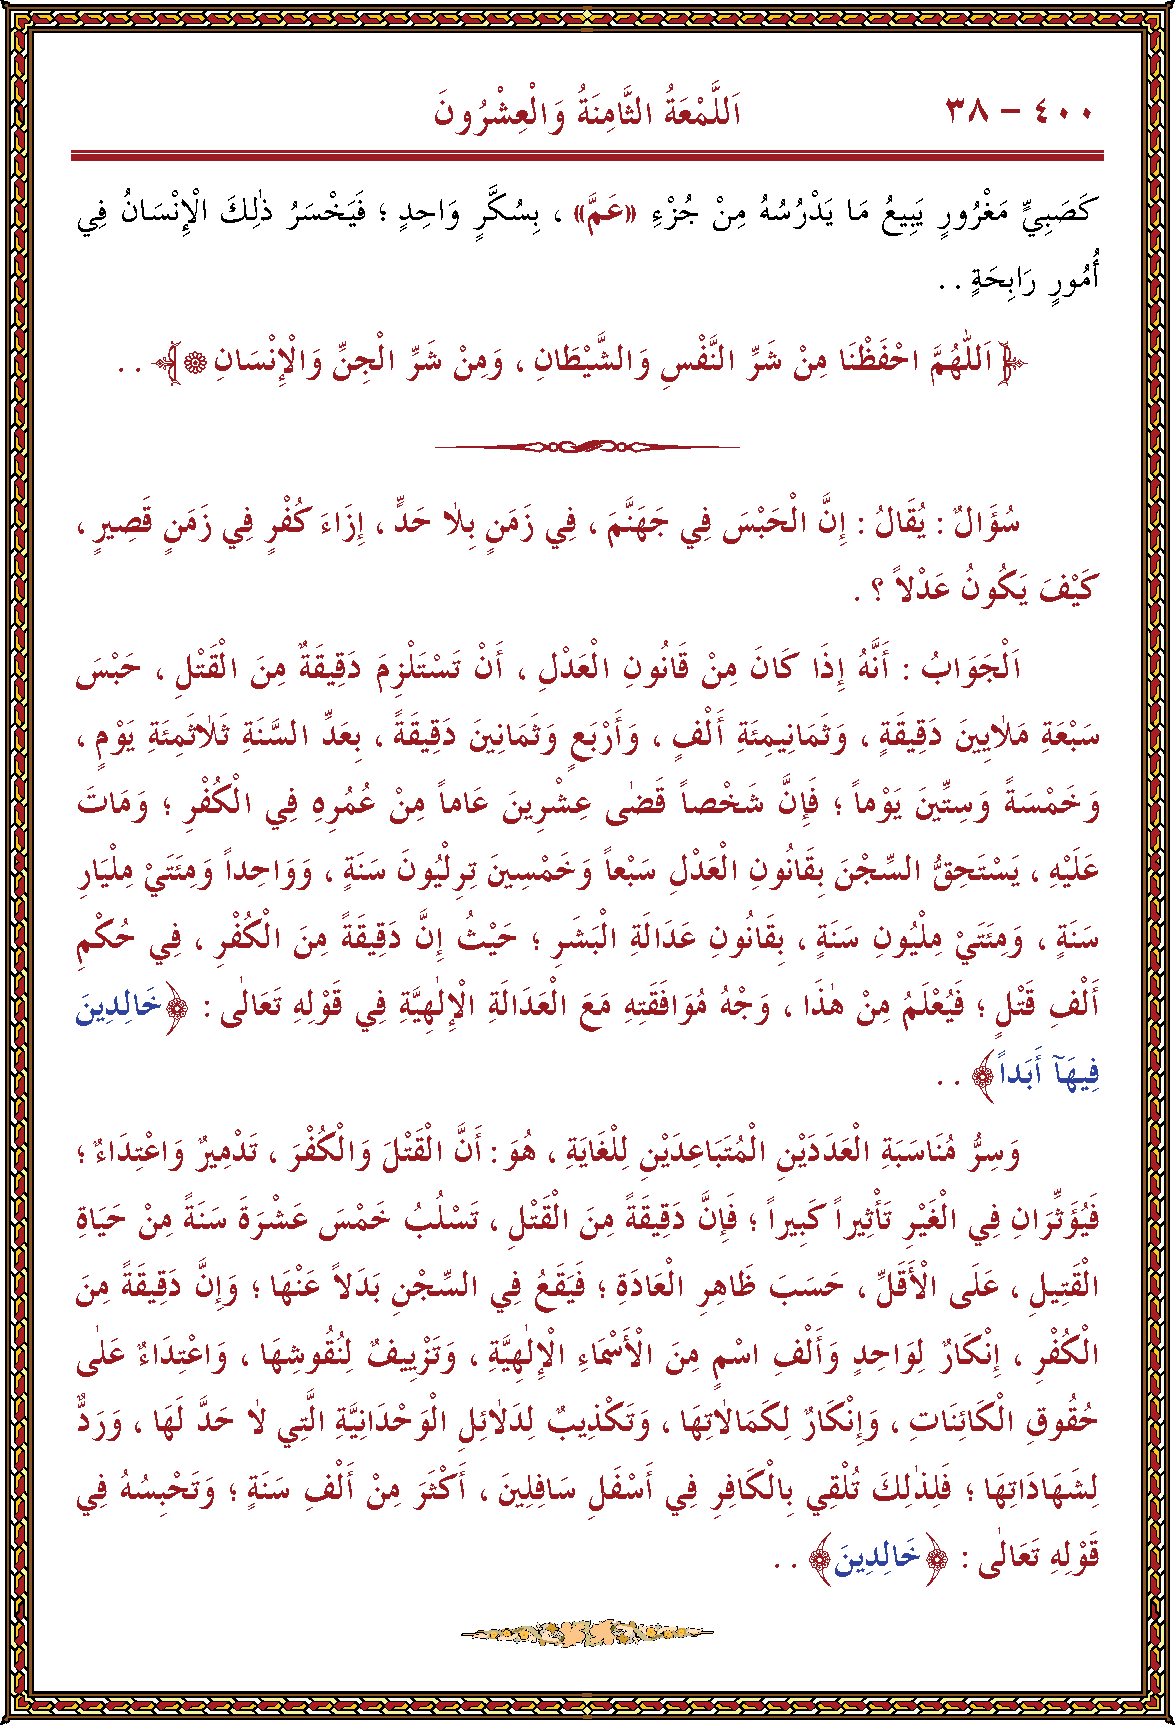 ٤٠٠ - ٣٨ اَللَّمْعَةُ الثَّامِنَةُ وَالْعِشْرُونَ
كَصَبِيٍّ مَغْرُورٍ يَبِيعُ مَا يَدْرُسُهُ مِنْ جُزْءِ «عَمَّ» ، بِسُكَّرٍ وَاحِدٍ ؛ فَيَخْسَرُ ذٰلِكَ الْإِنْسَانُ فِي
أُمُورٍ رَابِحَةٍ . .
﴿اَللّٰهُمَّ احْفَظْنَا مِنْ شَرِّ النَّفْسِ وَالشَّيْطَانِ ، وَمِنْ شَرِّ الْجِنِّ وَالْإِنْسَانِ ۞﴾ . .
سُؤَالٌ : يُقَالُ : إِنَّ الْحَبْسَ فِي جَهَنَّمَ ، فِي زَمَنٍ بِلَا حَدٍّ ، إِزَاءَ كُفْرٍ فِي زَمَنٍ قَصِيرٍ ،
كَيْفَ يَكُونُ عَدْلاً ؟ .
اَلْجَوَابُ : أَنَّهُ إِذَا كَانَ مِنْ قَانُونِ الْعَدْلِ ، أَنْ تَسْتَلْزِمَ دَقِيقَةٌ مِنَ الْقَتْلِ ، حَبْسَ
سَبْعَةِ مَلَايِينَ دَقِيقَةٍ ، وَثَمَانِيمِئَةِ أَلْفٍ ، وَأَرْبَعٍ وَثَمَانِينَ دَقِيقَةً ، بِعَدِّ السَّنَةِ ثَلَاثَمِئَةِ يَوْمٍ ،
وَخَمْسَةً وَسِتِّينَ يَوْماً ؛ فَإِنَّ شَخْصاً قَضٰى عِشْرِينَ عَاماً مِنْ عُمُرِهِ فِي الْكُفْرِ ؛ وَمَاتَ
عَلَيْهِ ، يَسْتَحِقُّ السِّجْنَ بِقَانُونِ الْعَدْلِ سَبْعاً وَخَمْسِينَ تِرِلْيُونَ سَنَةٍ ، وَوَاحِداً وَمِئَتَيْ مِلْيَارِ
سَنَةٍ ، وَمِئَتَيْ مِلْيُونِ سَنَةٍ ، بِقَانُونِ عَدَالَةِ الْبَشَرِ ؛ حَيْثُ إِنَّ دَقِيقَةً مِنَ الْكُفْرِ ، فِي حُكْمِ
أَلْفِ قَتْلٍ ؛ فَيُعْلَمُ مِنْ هٰذَا ، وَجْهُ مُوَافَقَتِهِ مَعَ الْعَدَالَةِ الْإِلٰهِيَّةِ فِي قَوْلِهِ تَعَالٰى : ﴿خَالِدِينَ
فِيهَآ أَبَداً﴾ . .
وَسِرُّ مُنَاسَبَةِ الْعَدَدَيْنِ الْمُتَبَاعِدَيْنِ لِلْغَايَةِ ، هُوَ : أَنَّ الْقَتْلَ وَالْكُفْرَ ، تَدْمِيرٌ وَاعْتِدَاءٌ ؛
فَيُؤَثِّرَانِ فِي الْغَيْرِ تَأْثِيراً كَبِيراً ؛ فَإِنَّ دَقِيقَةً مِنَ الْقَتْلِ ، تَسْلُبُ خَمْسَ عَشْرَةَ سَنَةً مِنْ حَيَاةِ
الْقَتِيلِ ، عَلَى الْأَقَلِّ ، حَسَبَ ظَاهِرِ الْعَادَةِ ؛ فَيَقَعُ فِي السِّجْنِ بَدَلاً عَنْهَا ؛ وَإِنَّ دَقِيقَةً مِنَ
الْكُفْرِ ، إِنْكَارٌ لِوَاحِدٍ وَأَلْفِ اسْمٍ مِنَ الْأَسْمَاءِ الْإِلٰهِيَّةِ ، وَتَزْيِيفٌ لِنُقُوشِهَا ، وَاعْتِدَاءٌ عَلٰى
حُقُوقِ الْكَائِنَاتِ ، وَإِنْكَارٌ لِكَمَالَاتِهَا ، وَتَكْذِيبٌ لِدَلَائِلِ الْوَحْدَانِيَّةِ الَّتِي لَا حَدَّ لَهَا ، وَرَدٌّ
لِشَهَادَاتِهَا ؛ فَلِذٰلِكَ تُلْقِي بِالْكَافِرِ فِي أَسْفَلِ سَافِلِينَ ، أَكْثَرَ مِنْ أَلْفِ سَنَةٍ ؛ وَتَحْبِسُهُ فِي
قَوْلِهِ تَعَالٰى : ﴿خَالِدِينَ﴾ . .